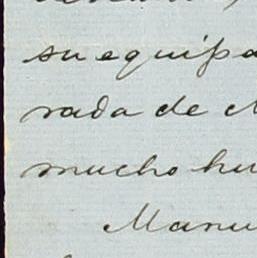 su equipa
rada de
mucho hu
Manu